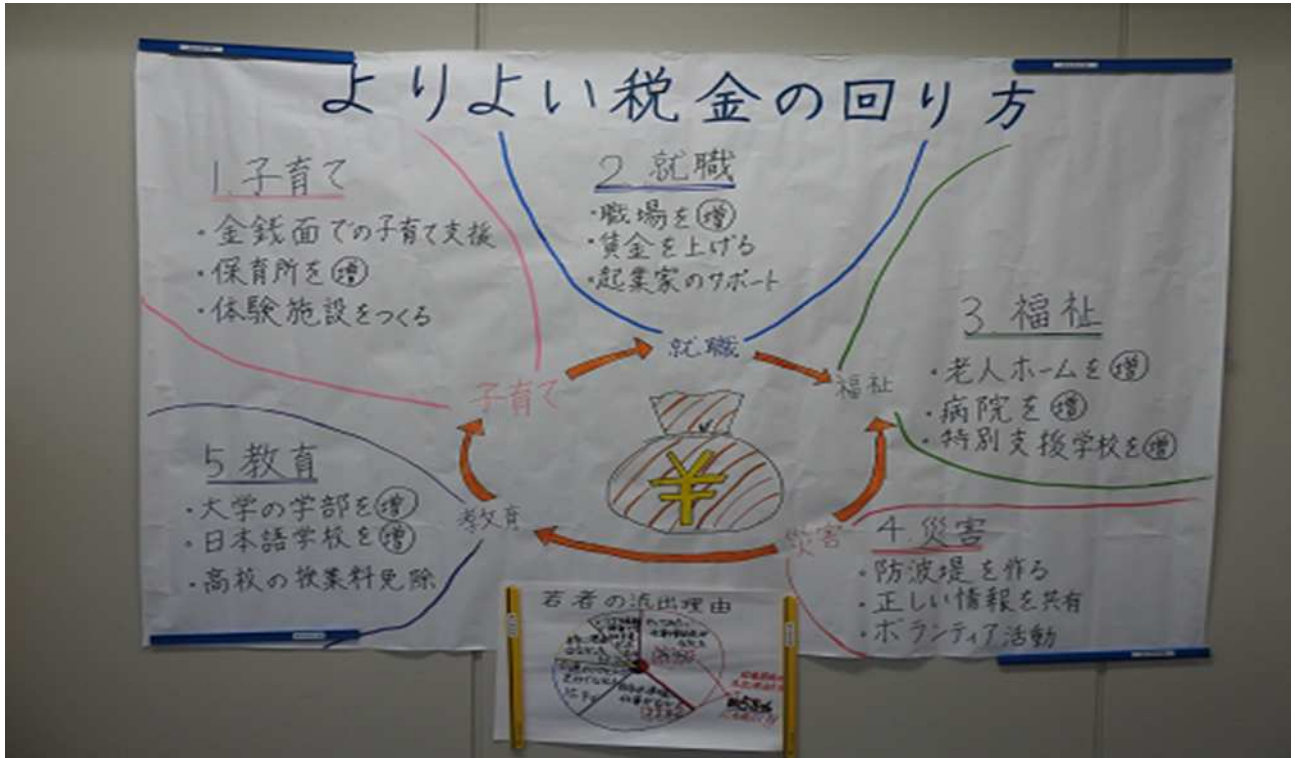 よりよい税金の回り方
1.子育て
・金銭面での子育て支援
・保育所を増
・体験施設をつくる
2.就職
・職場を増
・賃金を上げる
・起業家のサポート
3.福祉
・老人ホームを増
・病院を増
・特別支援学校を増
4.災害
・防波堤を作る
・正しい情報を共有
・ボランティア活動
5教育
・大学の学部を増
・日本語学校を増
・高校の授業料免除
子育て
就職
福祉
災害
教育
¥
若者の流出理由